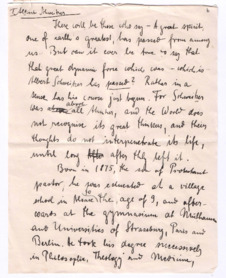 I Albert Schweitzer
There will be those who say - A great spirit,
one of earth's greatest, has passed from among
us. But can it ever be true to say that
that great dynamic force which was - which is -
Albert Schweitzer has passed? Rather in a
sense has his course just begun. For Schweitzer
was above all thinker, and the World does
not recognise its great thinkers, and their
thoughts do not interpenetrate its life,
until long after they left it.
Born in 1875, the son of Protestant
pastor, he was educated at a village
school to the age of 9, and after-
wards at the gymnasium at Mulhausen
and Universities of Strasbourg, Paris and
Berlin. He took his degree successively
in Philosophy, Theology and Medicine,